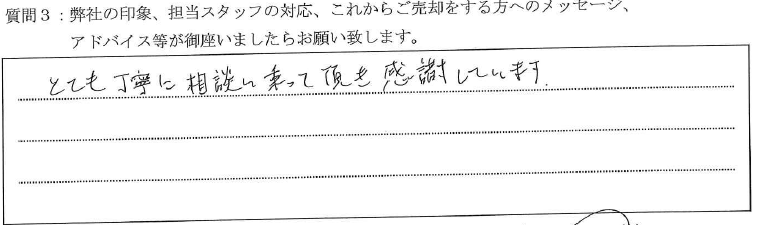 質問３：弊社の印象、担当スタッフの対応、これからご売却をする方へのメッセージ、
アドバイス等が御座いましたらお願い致します。
とても丁寧に相談に乗って頂き感謝しています.